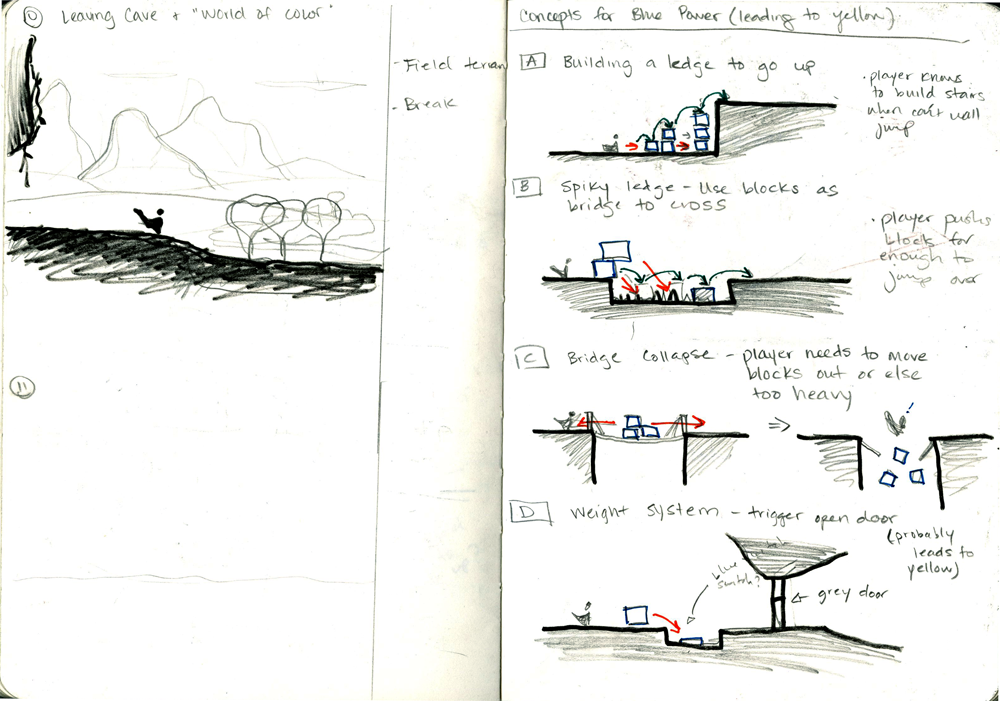 10 Leaving Cave + "World of color"
- Field terian
- Break
11
Concepts for Blue Power (leading to yellow)
A Building a ledge to go up
• player knows
to build stairs
when can't wall
jump
B Spiky ledge - Use blocks as
bridge to cross
• player push
block far
enough to
jump over
C Bridge Collapse - player needs to move
blocks out or else
too heavy
⇒
!
D Weight System - trigger open door
(probably
leads to
yellow)
blue
switch?
grey door